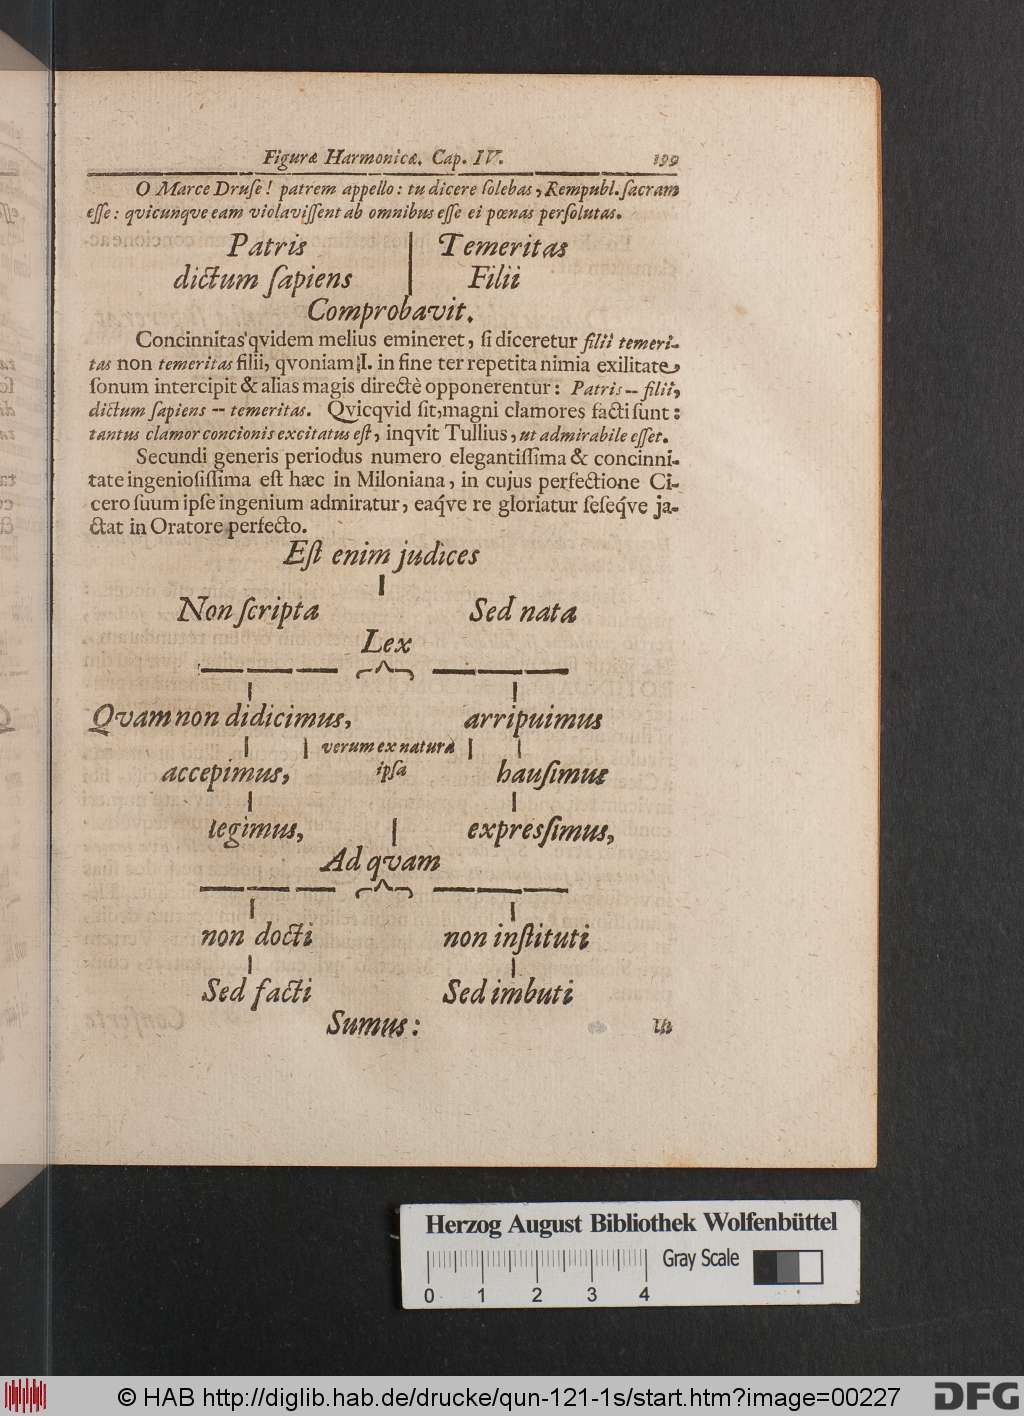 Figuræ Harmonicæ. Cap. IV. 199
O Marce Druſe! patrem appello: tu dicere ſolebas, Rempubl. ſacram
eſſe: qvicunqve eam violaviſſent ab omnibus eſſe ei pœnas perſolutas.
Patris | Temeritas
dictum ſapiens | Filii
Comprobavit.
Concinnitas qvidem melius emineret, ſi diceretur filii temeri-
tas non temeritas filii, qvoniam I. in fine ter repetita nimia exilitate,
ſonum intercipit & alias magis directè opponerentur: Patris -- filii,
dictum ſapiens -- temeritas. Qvicqvid ſit, magni clamores facti ſunt:
tantus clamor concionis excitatus eſt, inqvit Tullius, ut admirabile eſſet.
Secundi generis periodus numero elegantiſſima & concinni-
tate ingeniosiſſima eſt hæc in Miloniana, in cujus perfectione Ci-
cero ſuum ipſe ingenium admiratur, eaq́ve re gloriatur ſeſeq́ve ja-
ctat in Oratore perfecto.
Eſt enim judices
Non ſcripta Sed nata
Lex
Qvam non didicimus, arripuimus
verum ex natura
accepimus, ipſa hauſimus
legimus, expreſſimus,
Ad qvam
non docti non inſtituti
Sed facti Sed imbuti
Sumus: ut
Conſerte
Herzog August Bibliothek Wolfenbüttel
Gray Scale
0 1 2 3 4
© HAB http://diglib.hab.de/drucke/qun-121-1s/start.htm?image=00227 DFG